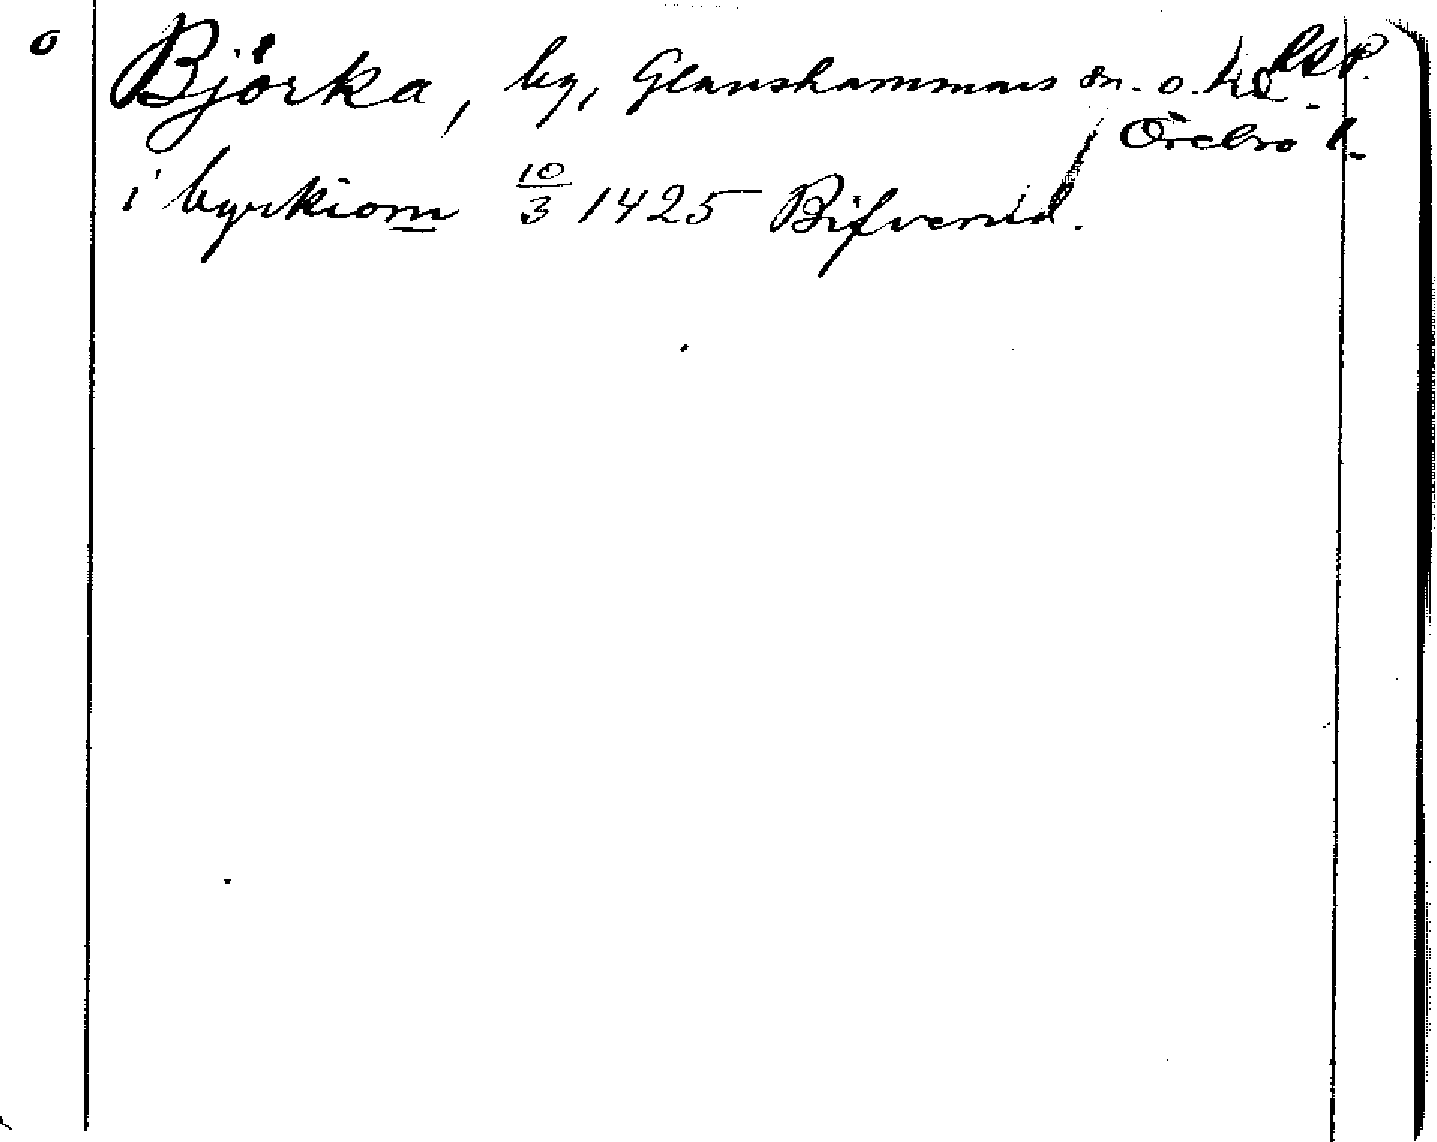 o Björka, by, Glanshammars sn. o. hd
Örebro l.
i byrkiom 10/3 1425 Bifverud.